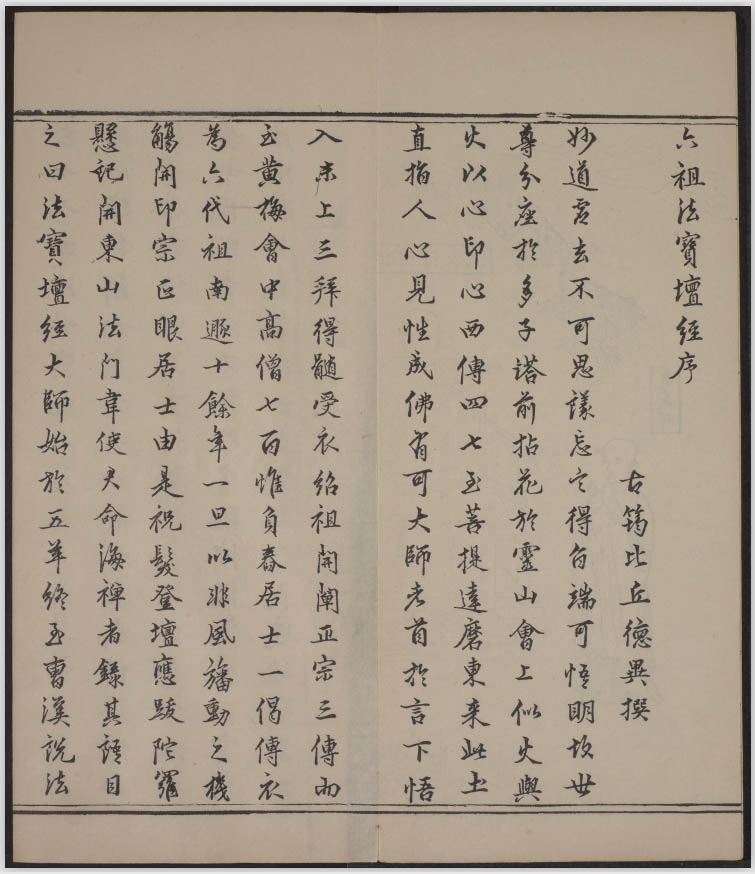 六祖法寶壇經序
古筠比丘德異撰
妙道虛玄不可思議忘言得旨端可悟明故世
尊分座於多子塔前拈花於靈山會上似火與
火以心印心西傳四七至菩提達磨東来此土
直指人心見性成佛有可大師者首於言下悟
入末上三拜得髓受衣紹祖開闡正宗三傳而
至黄梅會中高僧七百惟負舂居士一偈傳衣
為六代祖南遯十餘年一旦以非風旛動之機
觸開印宗正眼居士由是祝髮登壇應跋陀羅
懸記開東山法門韋使君命海禅者錄其語目
之曰法寶壇經大師始於五羊終至曹溪說法